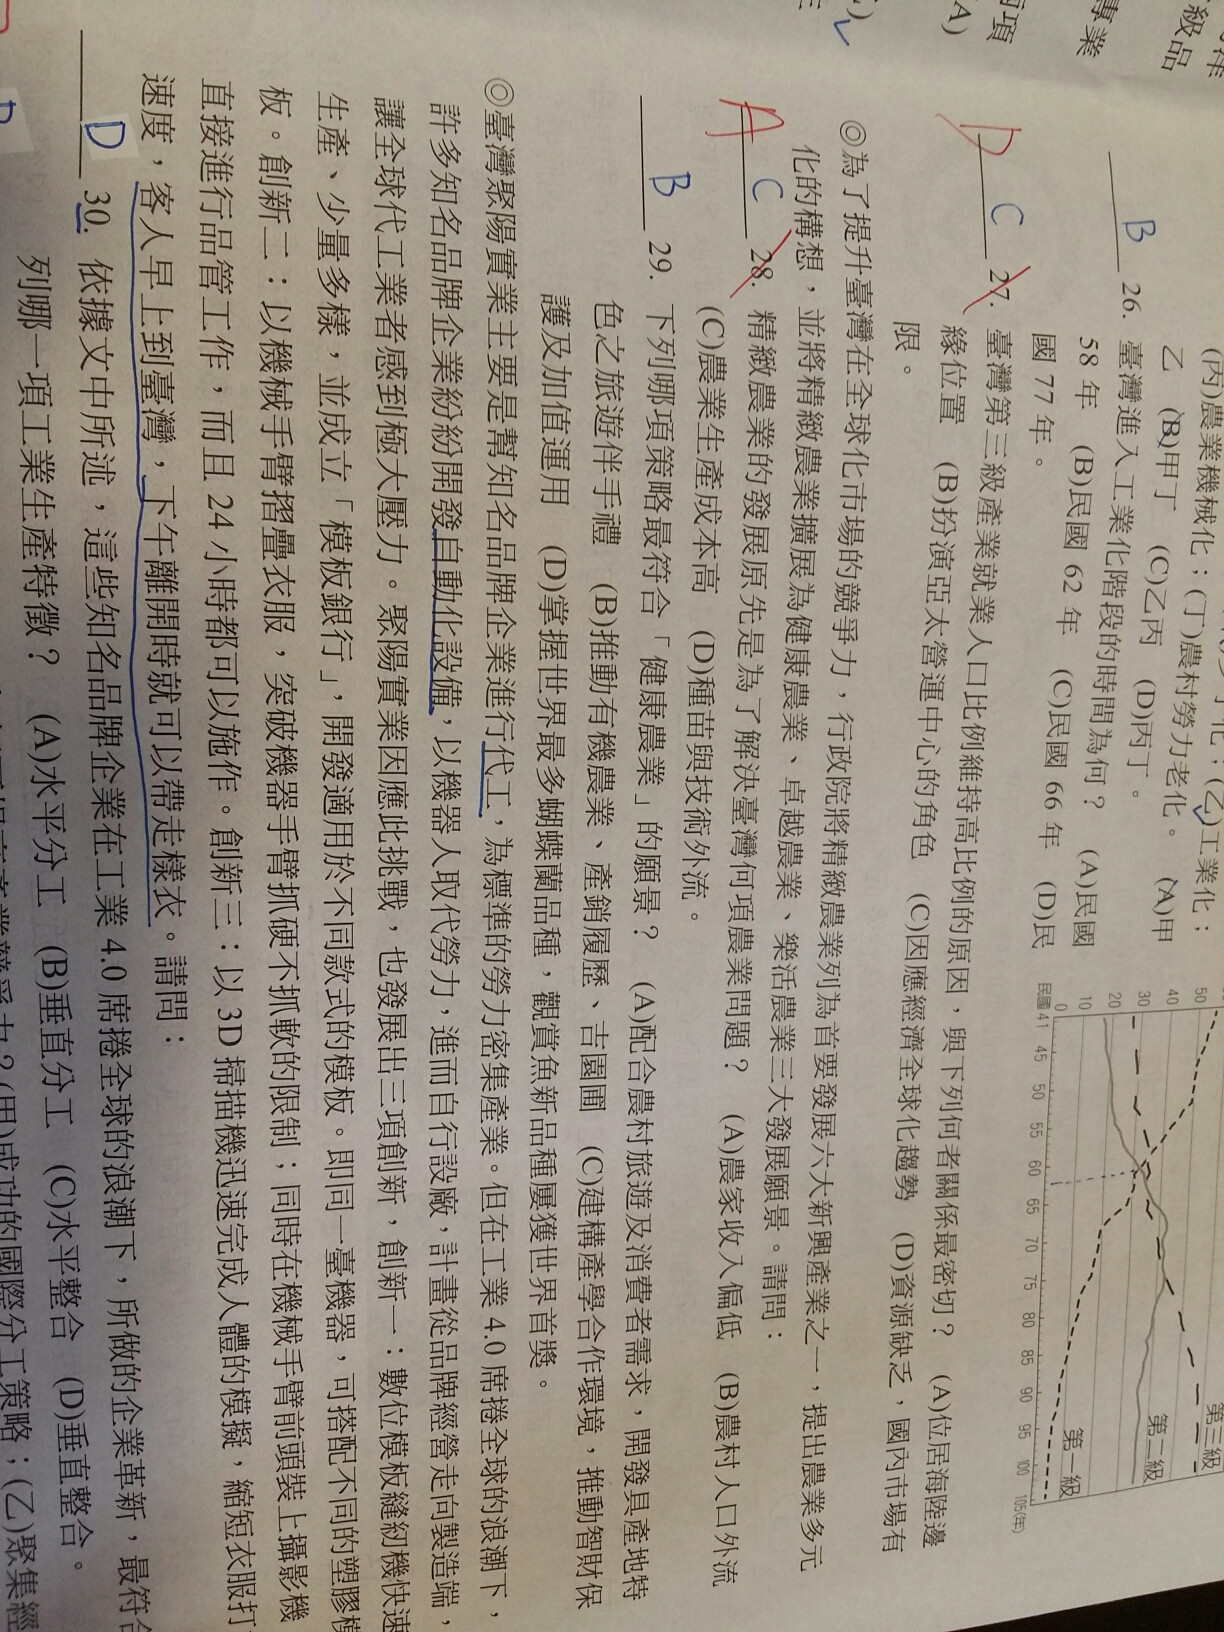 級品
專業
A)
(丙)農業機械化；(丁)農村勞力老化。 (A)甲
乙 (B)甲丁 (C)乙丙 (D)丙丁。
B 26. 臺灣進入工業化階段的時間為何？ (A)民國
58 年 (B)民國 62 年 (C)民國 66 年 (D)民
國 77 年。
50
40
30
20
10
0
民國 41 45 50 55 60 65 70 75 80 85 90 95 100 105(年)
第三級
第二級
第一級
D C 27. 臺灣第三級產業就業人口比例維持高比例的原因，與下列何者關係最密切？ (A)位居海陸邊
緣位置 (B)扮演亞太營運中心的角色 (C)因應經濟全球化趨勢 (D)資源缺乏，國內市場有
限。
◎為了提升臺灣在全球化市場的競爭力，行政院將精緻農業列為首要發展六大新興產業之一，提出農業多元
化的構想，並將精緻農業擴展為健康農業、卓越農業、樂活農業三大發展願景。請問：
A C 28. 精緻農業的發展原先是為了解決臺灣何項農業問題？ (A)農家收入偏低 (B)農村人口外流
(C)農業生產成本高 (D)種苗與技術外流。
B 29. 下列哪項策略最符合「健康農業」的願景？ (A)配合農村旅遊及消費者需求，開發具產地特
色之旅遊伴手禮 (B)推動有機農業、產銷履歷、吉園圃 (C)建構產學合作環境，推動智財保
護及加值運用 (D)掌握世界最多蝴蝶蘭品種，觀賞魚新品種屢獲世界首獎。
◎臺灣聚陽實業主要是幫知名品牌企業進行代工，為標準的勞力密集產業。但在工業 4.0 席捲全球的浪潮下，
許多知名品牌企業紛紛開發自動化設備，以機器人取代勞力，進而自行設廠，計畫從品牌經營走向製造端，
讓全球代工業者感到極大壓力。聚陽實業因應此挑戰，也發展出三項創新，創新一：數位模板縫紉機快速
生產、少量多樣，並成立「模板銀行」，開發適用於不同款式的模板。即同一臺機器，可搭配不同的塑膠模
板。創新二：以機械手臂摺疊衣服，突破機器手臂抓硬不抓軟的限制；同時在機械手臂前頭裝上攝影機
直接進行品管工作，而且 24 小時都可以施作。創新三：以 3D 掃描機迅速完成人體的模擬，縮短衣服打
速度，客人早上到臺灣，下午離開時就可以帶走樣衣。請問：
D 30. 依據文中所述，這些知名品牌企業在工業 4.0 席捲全球的浪潮下，所做的企業革新，最符合
列哪一項工業生產特徵？ (A)水平分工 (B)垂直分工 (C)水平整合 (D)垂直整合。
競爭力？(甲)成功的國際分工策略；(乙)聚集經